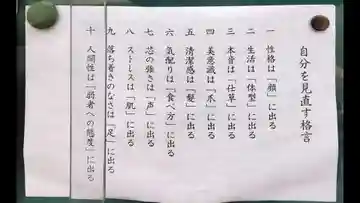 自分を見直す格言
一 性格は「顔」に出る
二 生活は「体型」に出る
三 本音は「仕草」に出る
四 美意識は「爪」に出る
五 清潔感は「髪」に出る
六 気配りは「食べ方」に出る
七 芯の強さは「声」に出る
八 ストレスは「肌」に出る
九 落ち着きのなさは「足」に出る
十 人間性は「弱者への態度」に出る